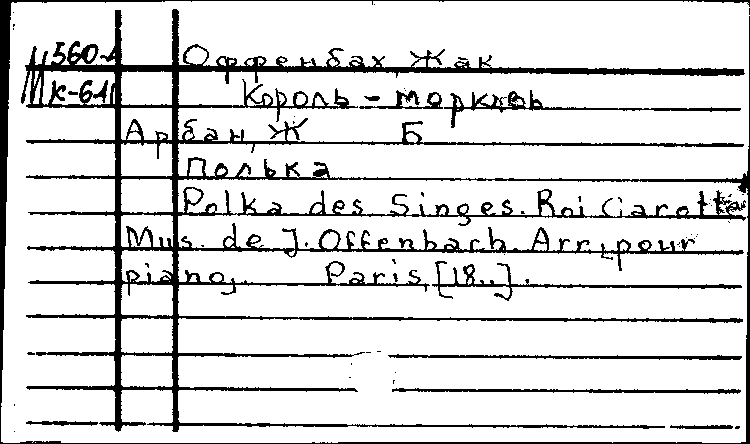 М 560-4 Оффенбах, Жак
М к-641 Король - морковь
Арбан, Ж Б
Полька
Polka des Singes. Roi Carotte
Mus. de J. Offenbach. Arr. pour
piano,. Paris, [18..].